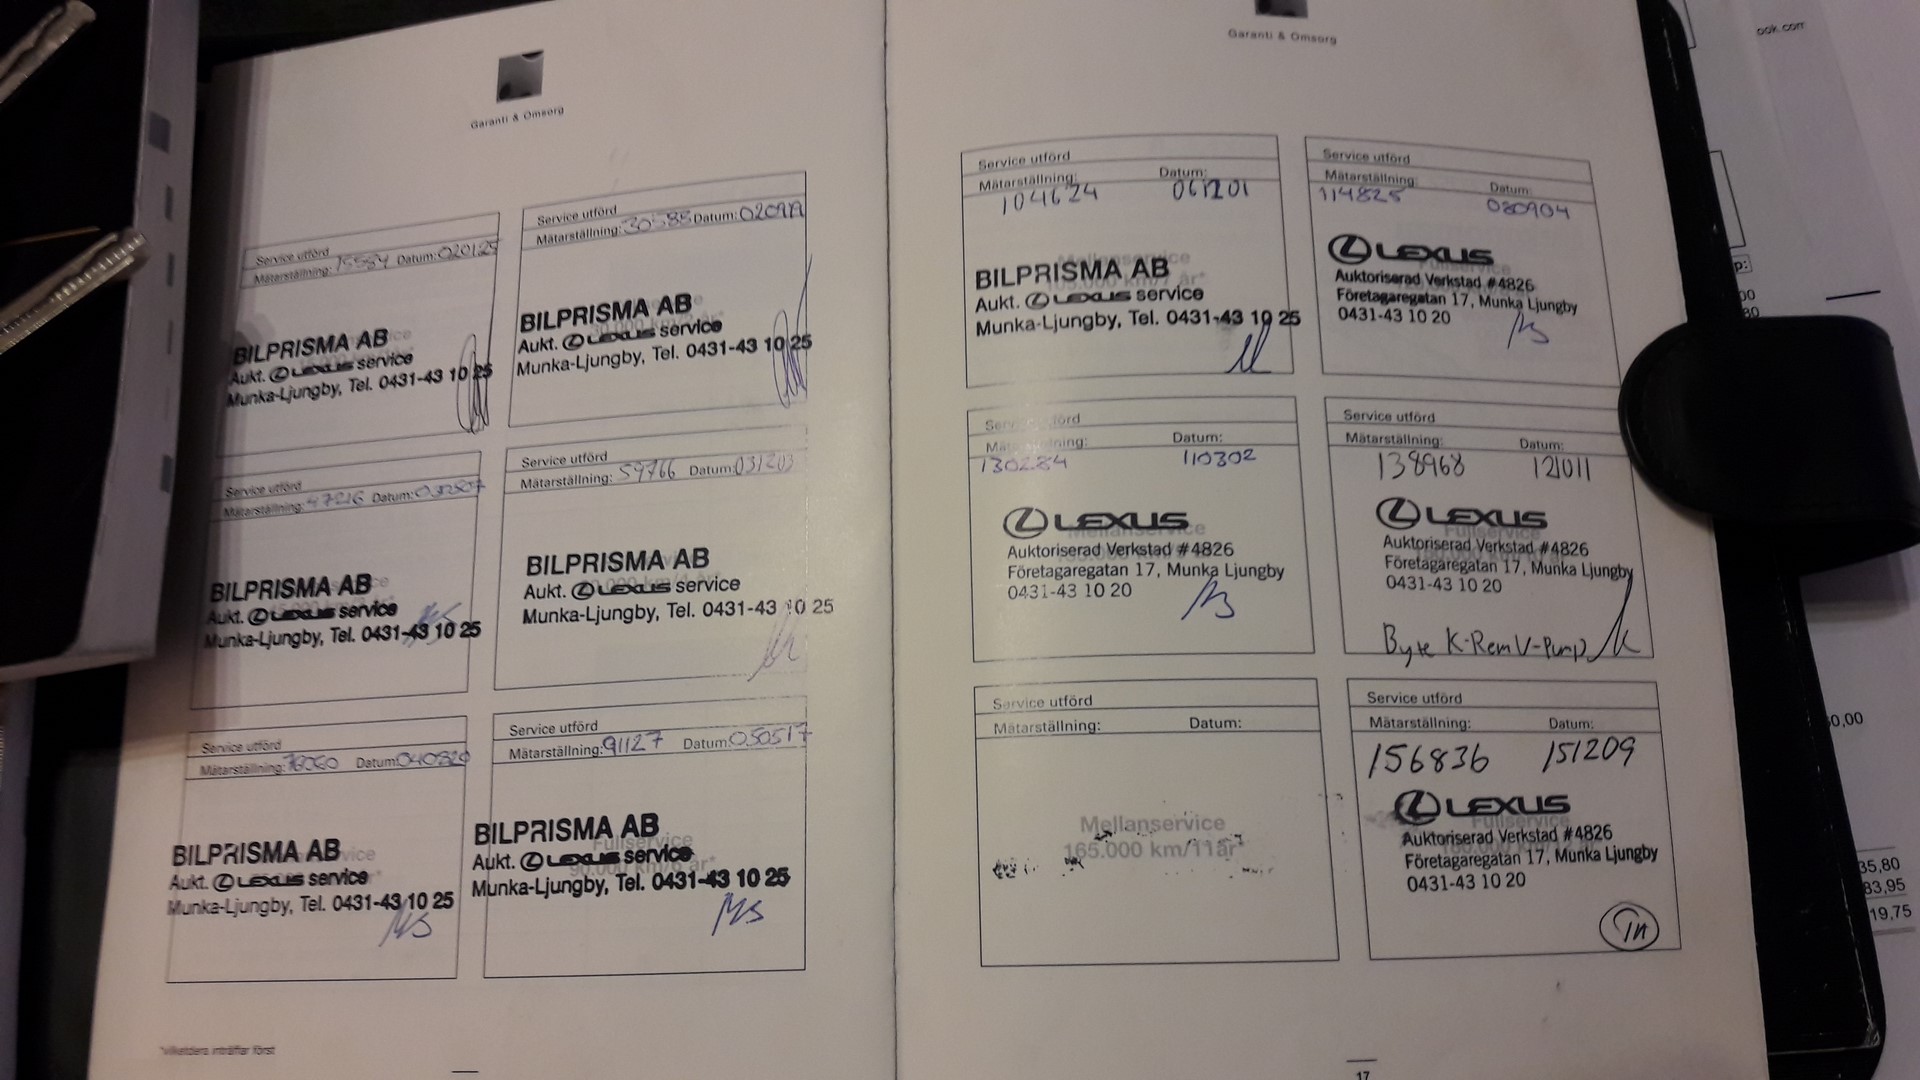 Garanti & Omsorg
Service utförd
Mätarställning: Datum: 020125
BILPRISMA AB
Aukt. LEXUS service
Munka-Ljungby, Tel. 0431-43 10 25
Service utförd
Mätarställning: Datum: 020919
BILPRISMA AB
Aukt. LEXUS service
Munka-Ljungby, Tel. 0431-43 10 25
Service utförd
Mätarställning: Datum:
BILPRISMA AB
Aukt. LEXUS service
Munka-Ljungby, Tel. 0431-43 10 25
Service utförd
Mätarställning: 59766 Datum: 031203
BILPRISMA AB
Aukt. LEXUS service
Munka-Ljungby, Tel. 0431-43 10 25
Service utförd
Mätarställning: Datum:
BILPRISMA AB
Aukt. LEXUS service
Munka-Ljungby, Tel. 0431-43 10 25
Service utförd
Mätarställning: 91127 Datum: 050517
BILPRISMA AB
Fullservice
Aukt. LEXUS service
Munka-Ljungby, Tel. 0431-43 10 25
*Vilketdera inträffar först
Garanti & Omsorg
Service utförd
Mätarställning: Datum:
104624 061201
Mellanservice
BILPRISMA AB
Aukt. LEXUS service
Munka-Ljungby, Tel. 0431-43 10 25
Service utförd
Mätarställning: Datum:
114825 080904
LEXUS
Fullservice
Auktoriserad Verkstad #4826
Företagaregatan 17, Munka Ljungby
0431-43 10 20
Service utförd
Mätarställning: Datum:
130284 110302
LEXUS
Mellanservice
Auktoriserad Verkstad #4826
Företagaregatan 17, Munka Ljungby
0431-43 10 20
Service utförd
Mätarställning: Datum:
138968 121011
LEXUS
Fullservice
Auktoriserad Verkstad #4826
Företagaregatan 17, Munka Ljungby
0431-43 10 20
Byte K-Rem V-Pump
Service utförd
Mätarställning: Datum:
Mellanservice
165.000 km/11år*
Service utförd
Mätarställning: Datum:
156836 151209
LEXUS
Fullservice
Auktoriserad Verkstad #4826
Företagaregatan 17, Munka Ljungby
0431-43 10 20
17
35,80
83,95
19,75